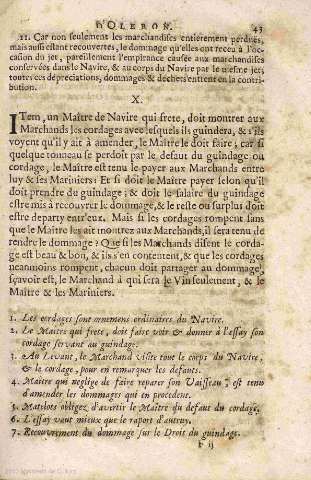 D'OLERON. 43
11. Car non seulement les marchandises entierement perduës,
mais aussi estant recouvertes, le dommage qu'elles ont receu à l'oc-
casion du jet, pareillement l'empirance causée aux marchandises
conservées dans le Navire, & au corps du Navire par le mesme jet;
toutes ces dépreciations, dommages & déchets entrent en la contri-
bution.
X.
ITem, un Maître de Navire qui frete, doit montrer aux
Marchands les cordages avec lesquels ils guindera, & s'ils
voyent qu'il y ait à amender, le Maître le doit faire; car si
quelque tonneau se perdoit par le defaut du guindage ou
cordage, le Maître est tenu le payer aux Marchands entre
luy & ses Mariniers: Et si doit le Maître payer selon qu'il
doit prendre du guindage; & doit le salaire du guindage
estre mis à recouvrer le dommage, & le reste ou surplus doit
estre departy entr'eux. Mais si les cordages rompent sans
que le Maître les ait montrez aux Marchands, il sera tenu de
rendre le dommage? Que si les Marchands disent le corda-
ge est beau & bon, & ils s'en contentent, & que les cordages
neanmoins rompent, chacun doit partager au dommage,
sçavoir est, le Marchand à qui sera le Vin seulement, & le
Maître & les Mariniers.
1. Les cordages sont ornemens ordinaires du Navire.
2. Le Maître qui frete, doit faire voir & donner à l'essay son
cordage servant au guindage.
3. Au Levant, le Marchand visite tout le corps du Navire,
& le cordage, pour en remarquer les defauts.
4. Maître qui neglige de faire reparer son Vaisseau, est tenu
d'amender les dommages qui en procedent.
5. Matelots obligez d'avertir le Maître du defaut du cordage.
6. L'essay vaut mieux que le raport d'autruy.
7. Recouvrement du dommage sur le Droit du guindage.
F ij